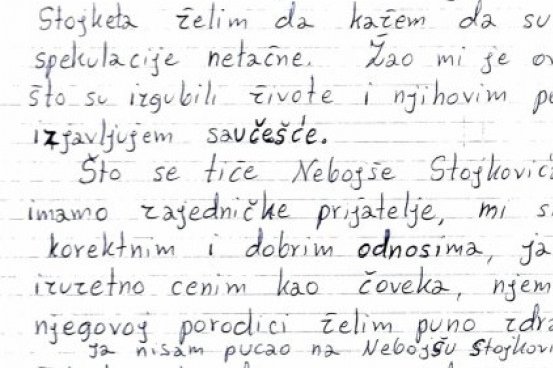 Stojketa želim da kažem da su
spekulacije netačne. Žao mi je
što su izgubili živote i njihovim
izjavljujem saučešće.
Što se tiče Nebojše Stojković
imamo zajedničke prijatelje, mi s
korektnim i dobrim odnosima, ja
izuzetno cenim kao čoveka, njem
njegovoj porodici želim puno zdra
ja nisam pucao na Nebojšu Stojkovi